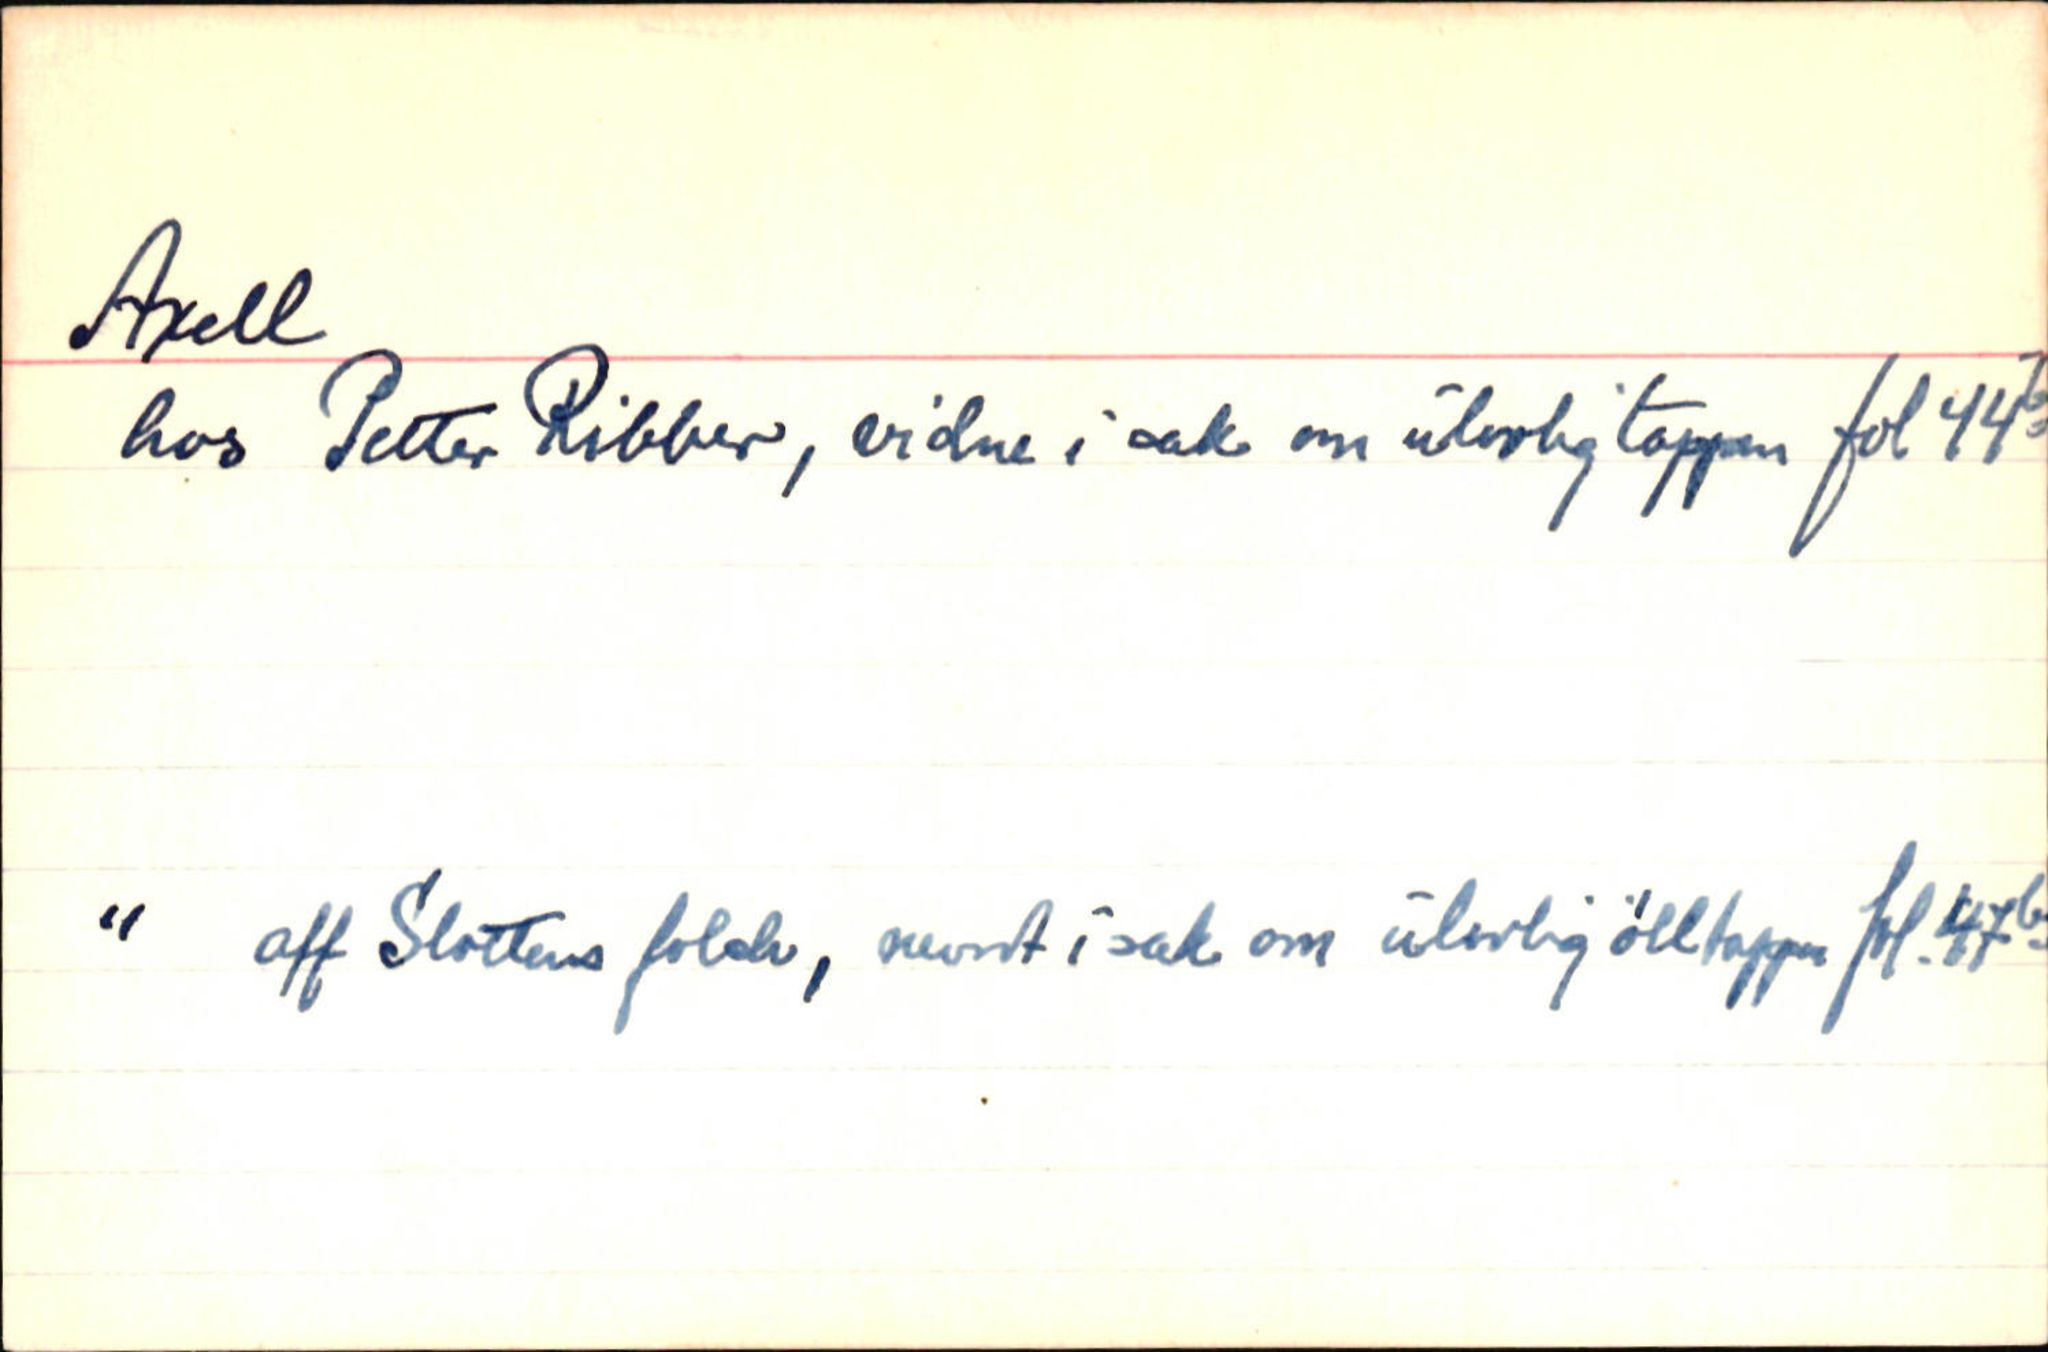 Axell
hos Petter Ribber, vidne i sak om ulovlig tappen fol 44b
" aff Slottens folch, nevnt i sak om ulovlig ölltappen fol. 47b